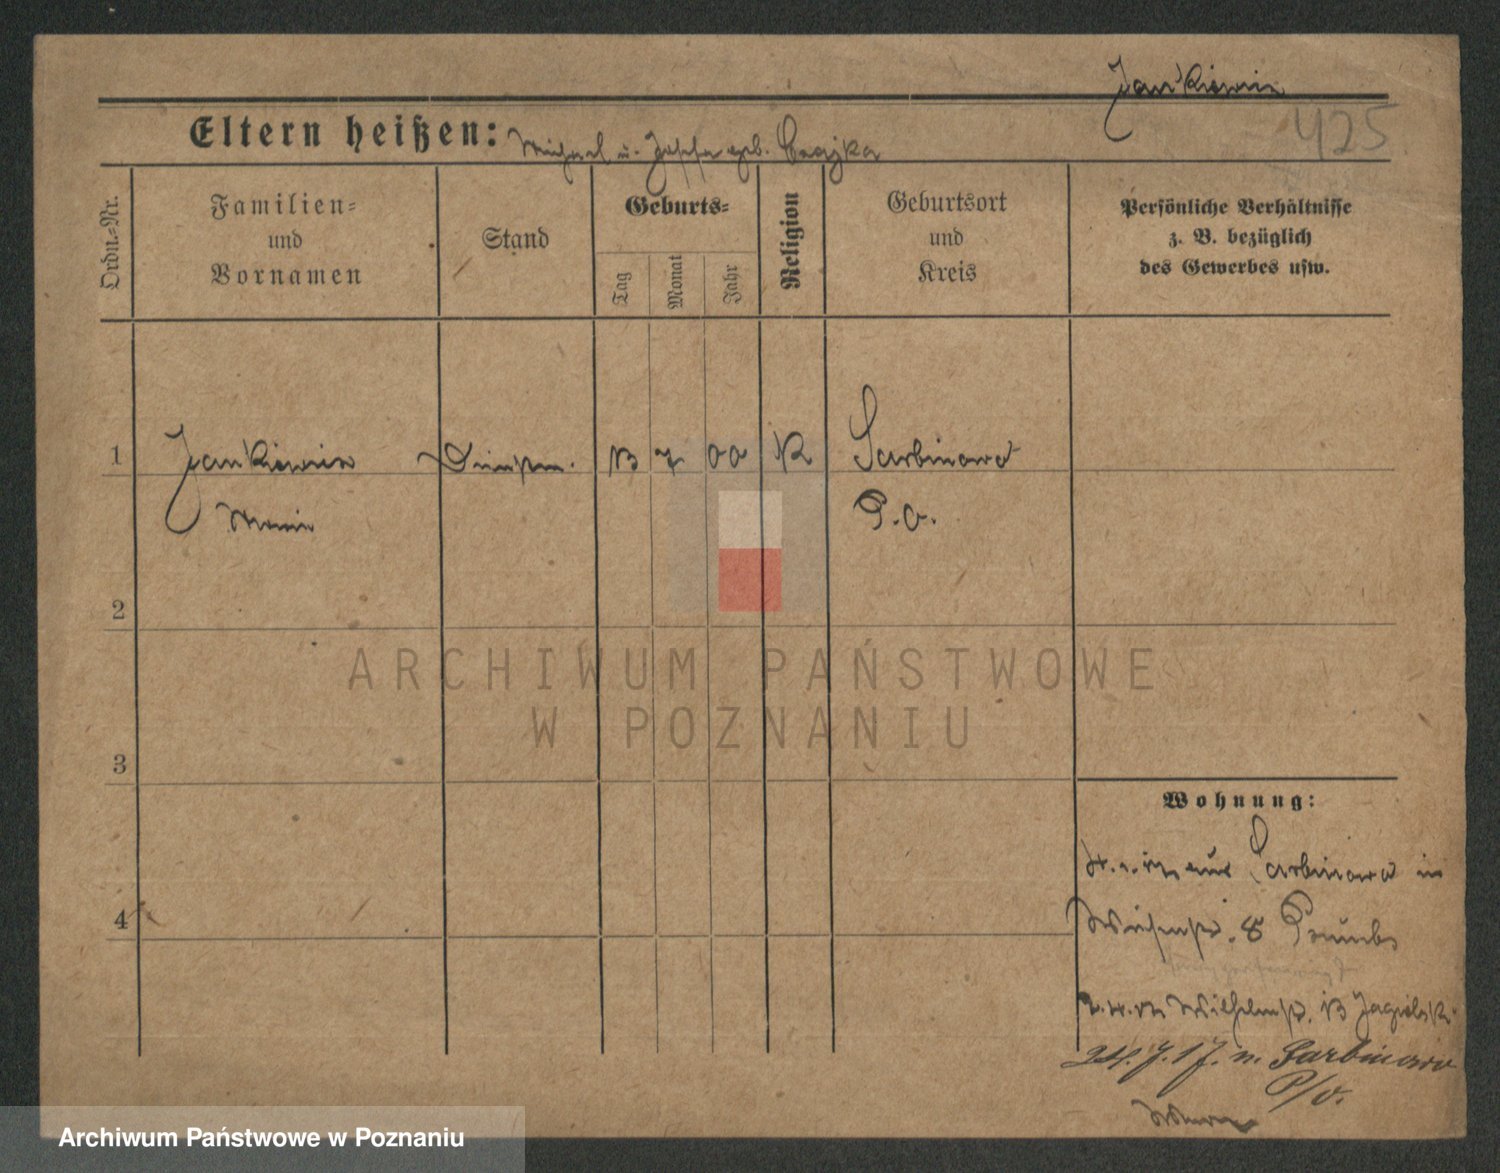 Jankiewicz
425
Eltern heißen: Michael u. Josefa geb. Czajka
Ordn.=Nr.
Familien=
und
Vornamen
Stand
Geburts=
Tag
Monat
Jahr
Religion
Geburtsort
und
Kreis
Persönliche Verhältnisse
z. B. bezüglich
des Gewerbes usw.
1
Jankiewicz
13 7 00 K
Sarbinowo
P.O.
2
3
4
Wohnung:
aus Sarbinowo in
8
Wilhelmstr. 13
24.7.17. n. Sarbinowo
P/O.
ARCHIWUM PAŃSTWOWE
W POZNANIU
Archiwum Państwowe w Poznaniu